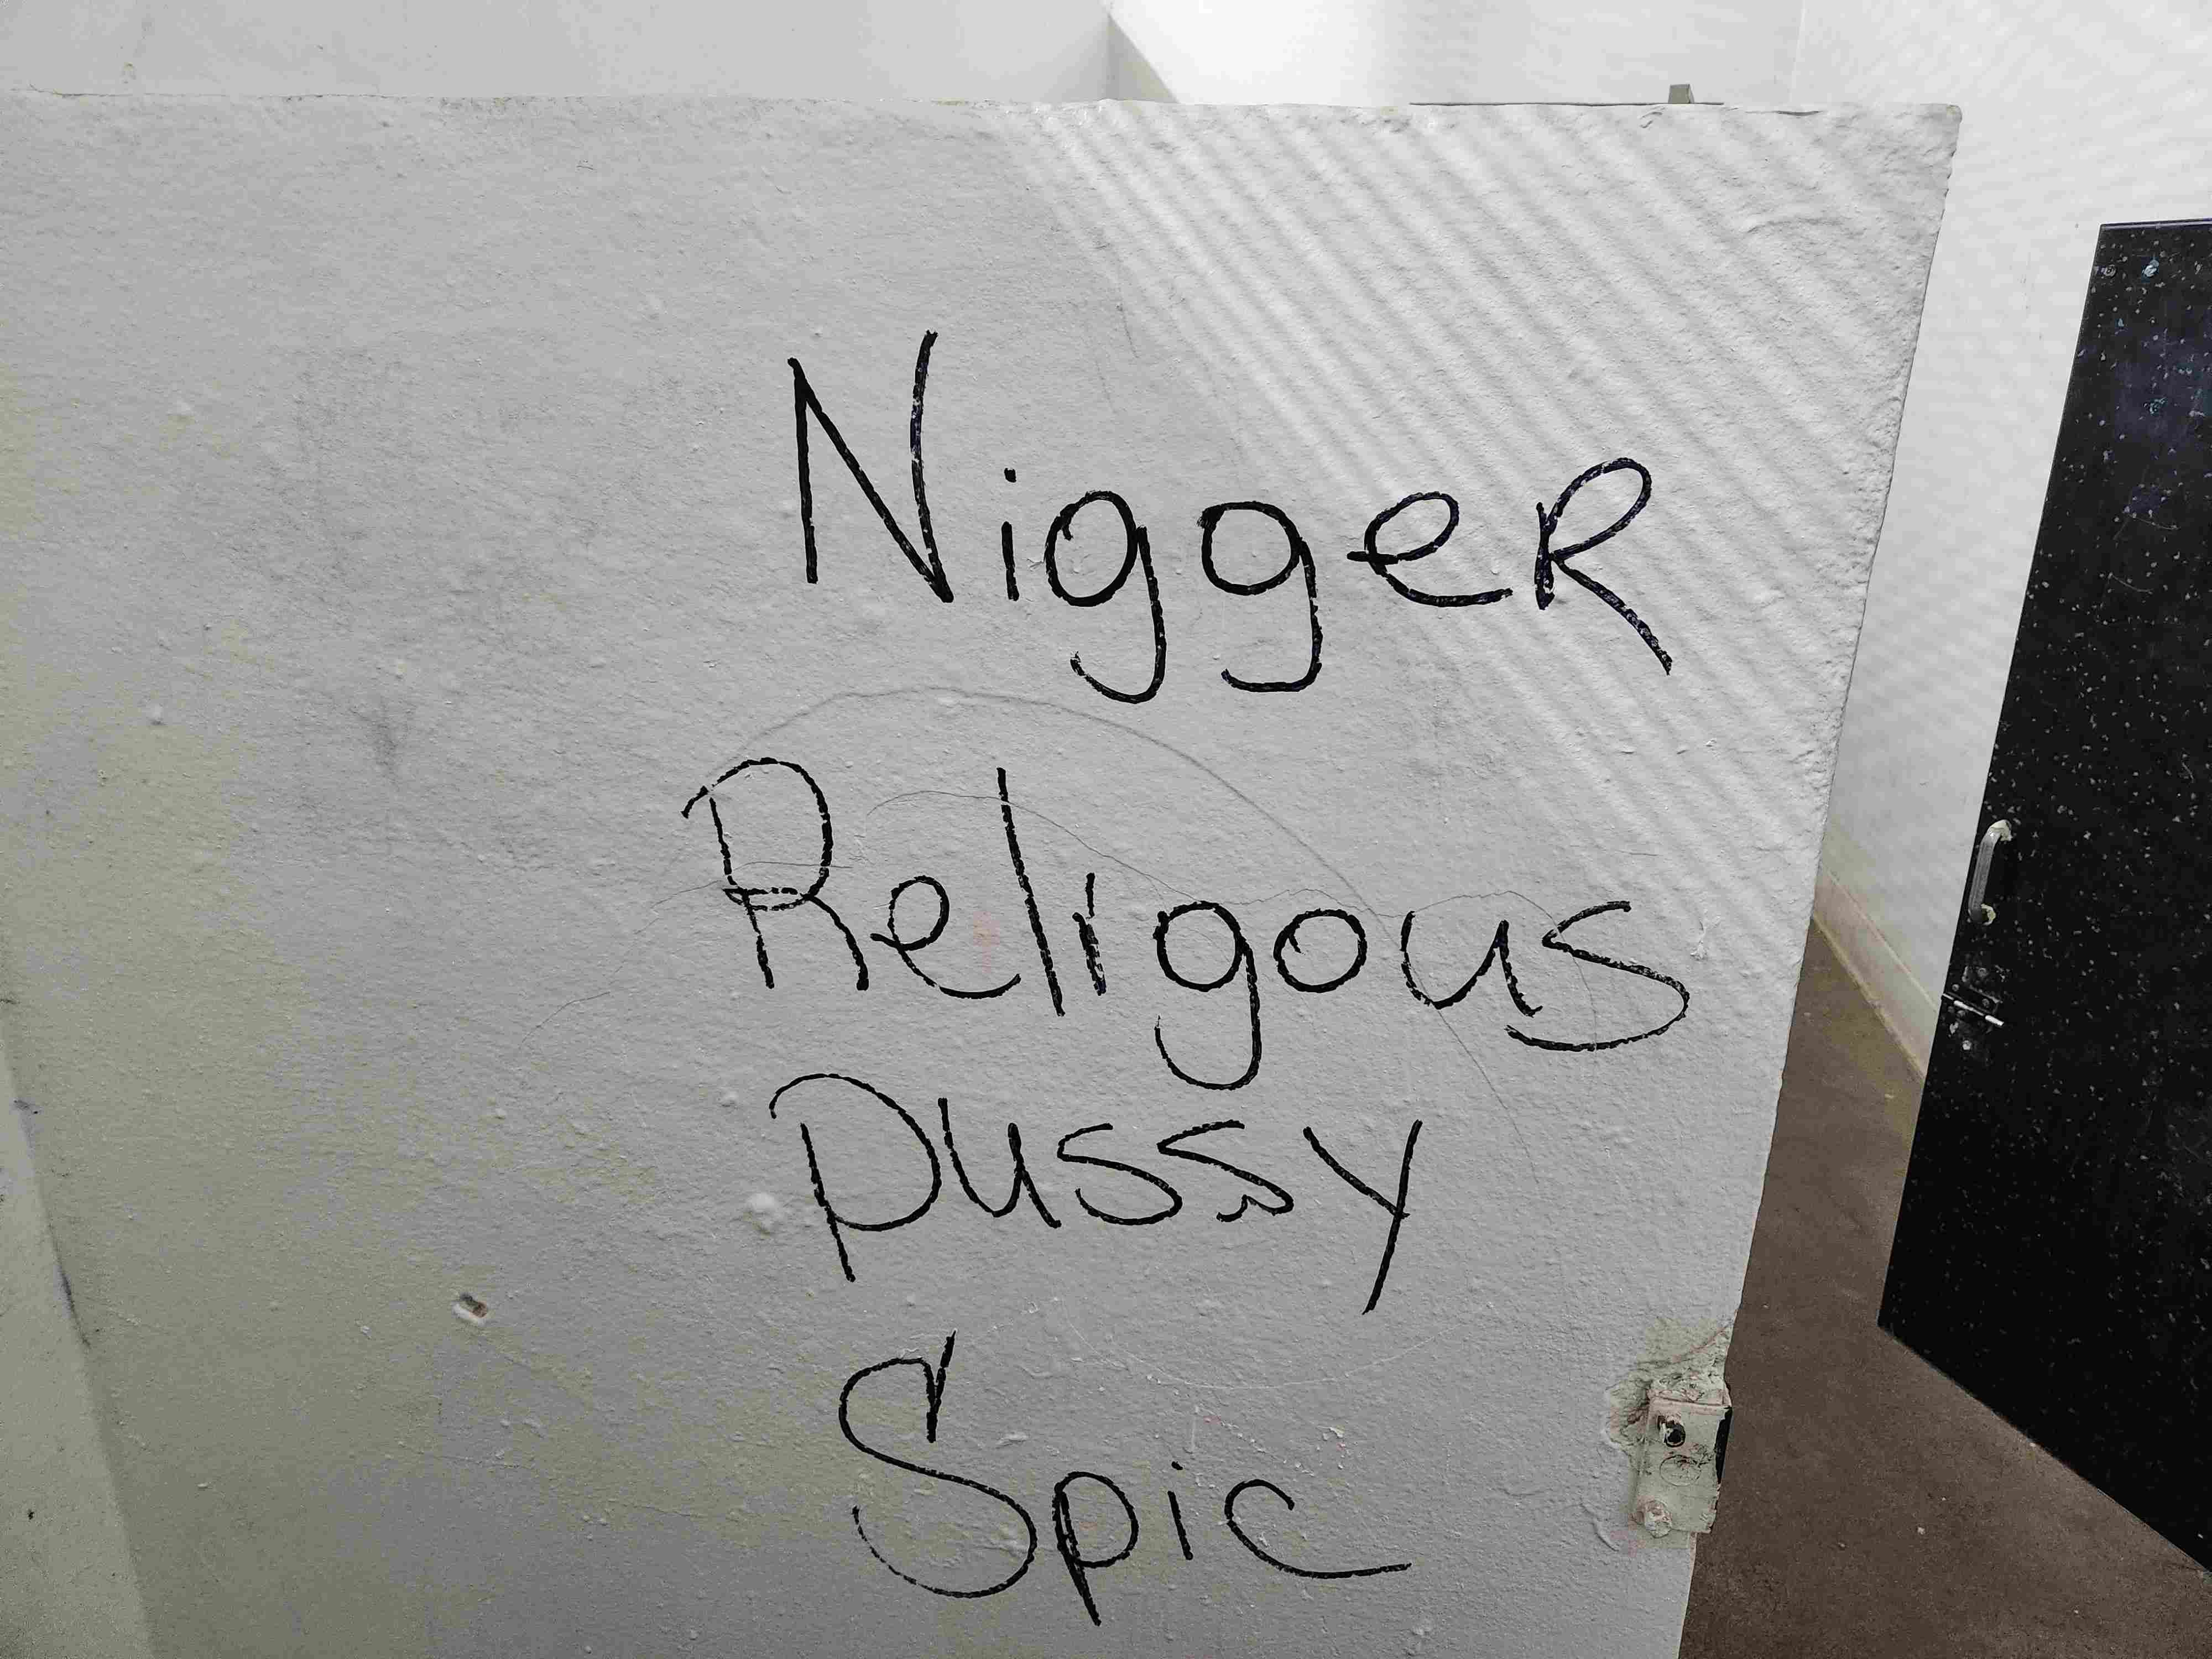 NiggeR
Religous
pussy
Spic